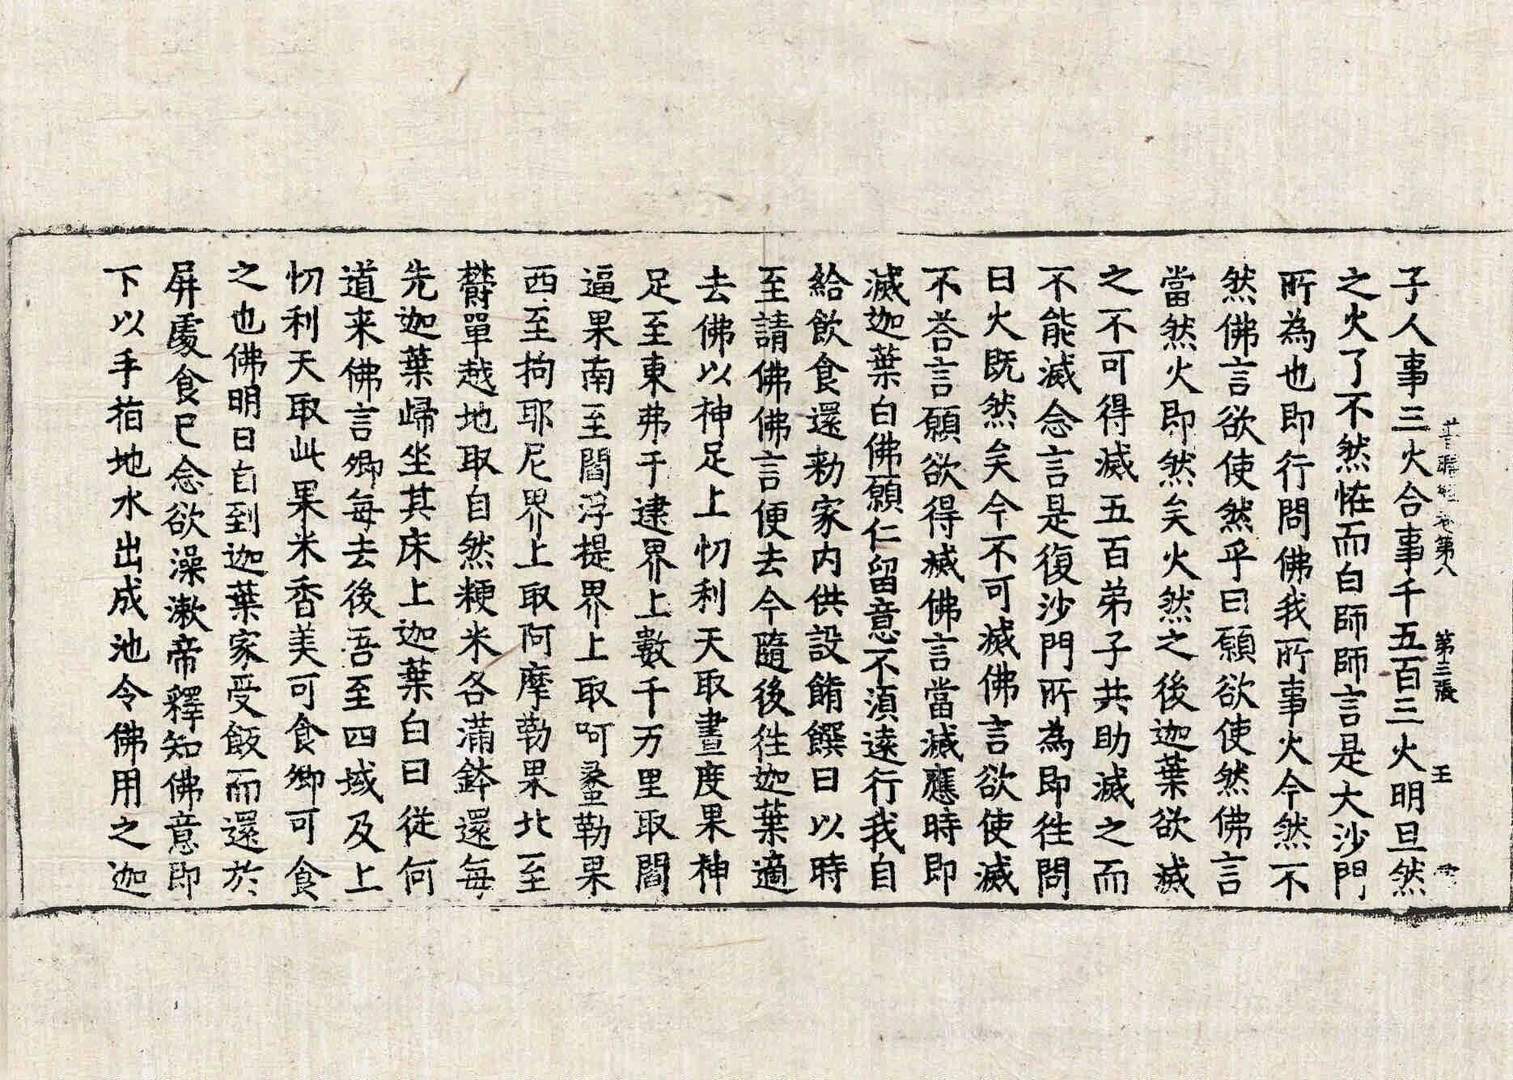 普曜經卷第八　第三張　王
子人事三火合事千五百三火明旦然
之火了不然恠而白師師言是大沙門
所為也即行問佛我所事火今然不
然佛言欲使然乎曰願欲使然佛言
當然火即然矣火然之後迦葉欲滅
之不可得滅五百弟子共助滅之而
不能滅念言是復沙門所為即徃問
曰火既然矣今不可滅佛言欲使滅
不荅言願欲得滅佛言當滅應時即
滅迦葉白佛願仁留意不湏遠行我自
給飲食還勑家內供設餚饌日以時
至請佛佛言便去今隨後徃迦葉適
去佛以神足上忉利天取晝度果神
足至東弗于逮界上數千万里取閻
逼果南至閻浮提界上取呵蟸勒果
西至拘耶尼界上取阿摩勒果北至
欝單越地取自然粳米各滿鉢還每
先迦葉歸坐其床上迦葉白曰從何
道来佛言卿每去後吾至四域及上
忉利天取此果米香美可食卿可食
之也佛明日自到迦葉家受飯而還於
屏處食已念欲澡漱帝釋知佛意即
下以手指地水出成池令佛用之迦